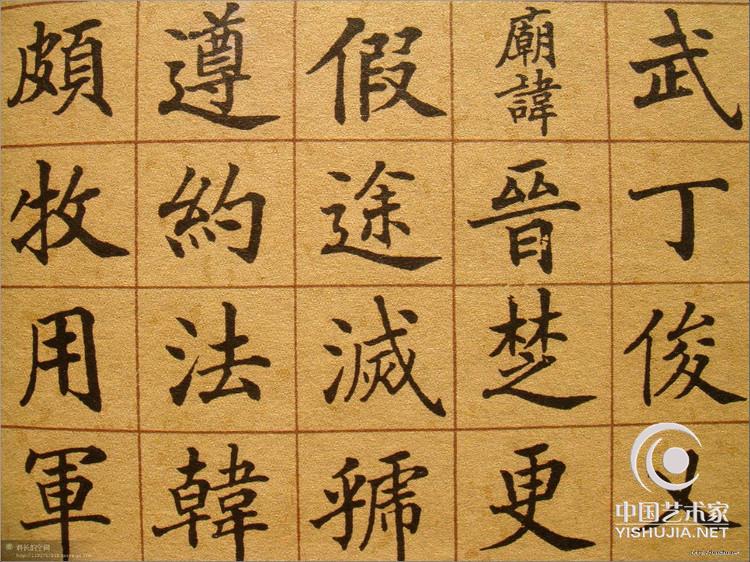 武丁俊
廟諱晉楚更
假途滅虢
遵約法韓
頗牧用軍
中国艺术家
YISHUJIA.NET